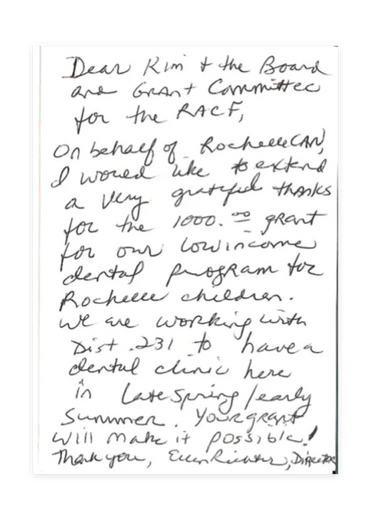 Dear Kim + the Board
and Grant Committee
for the RACF,
On behalf of RochelleCAN,
I would like to extend
a very grateful thanks
for the 1000.00 grant
for our low income
dental program for
Rochelle children.
We are working with
Dist. 231 to have a
dental clinic here
in late spring/early
summer. Your grant
will make it possible!
Thank you, Ellen Richter, Director